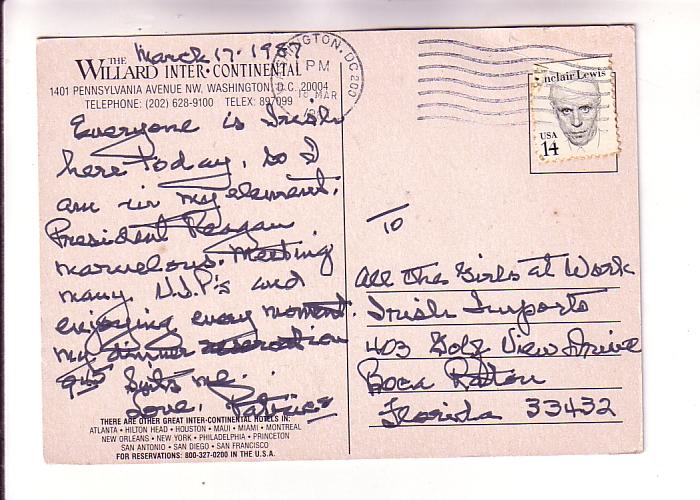 March 17. 1987
THE
WILLARD INTER·CONTINENTAL
1401 PENNSYLVANIA AVENUE NW, WASHINGTON, D.C. 20004
TELEPHONE: (202) 628-9100 TELEX: 897099
Everyone is Irish
here today, so I
am in my element.
President Reagan
marvelous. Meeting
many V.I.P's and
enjoying every moment.
my dinner reservation
9:15 suits me.
Love, Patrice
THERE ARE OTHER GREAT INTER-CONTINENTAL HOTELS IN:
ATLANTA • HILTON HEAD • HOUSTON • MAUI • MIAMI • MONTREAL
NEW ORLEANS • NEW YORK • PHILADELPHIA • PRINCETON
SAN ANTONIO • SAN DIEGO • SAN FRANCISCO
FOR RESERVATIONS: 800-327-0200 IN THE U.S.A.
WASHINGTON, DC 200
PM
18 MAR
Sinclair Lewis
USA
14
To
All the Girls at Work
Irish Imports
403 Golf View Drive
Boca Raton
Florida 33432